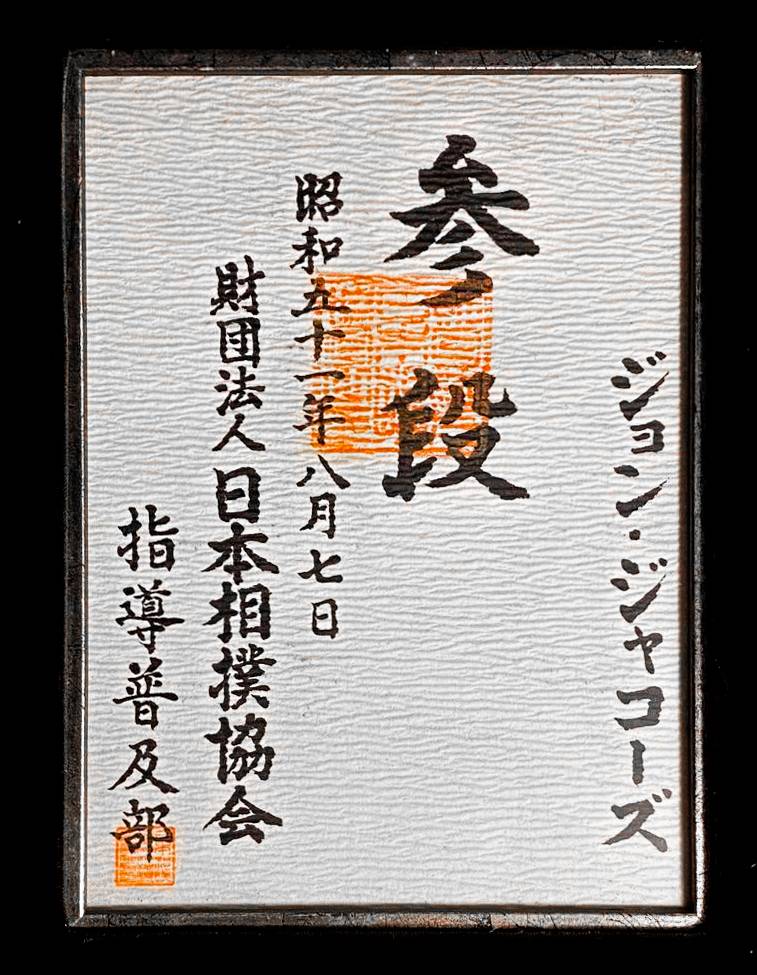 ジョン・ジャコーズ
参段
昭和五十一年八月七日
財団法人日本相撲協会
指導普及部